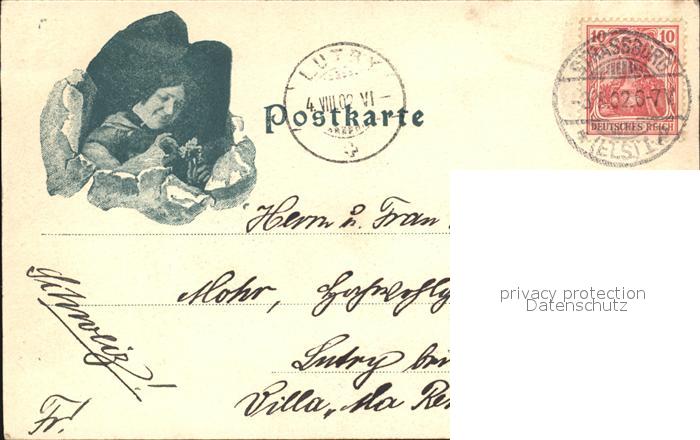 LUTRY
4.VIII.02 VI
Postkarte
10 10
DEUTSCHES REICH
STRASSBURG
02.6-7
Herrn u. Frau
Mohr,
Lutry bei
Villa „Ma Re
Schweiz!
Fr!
privacy protection
Datenschutz